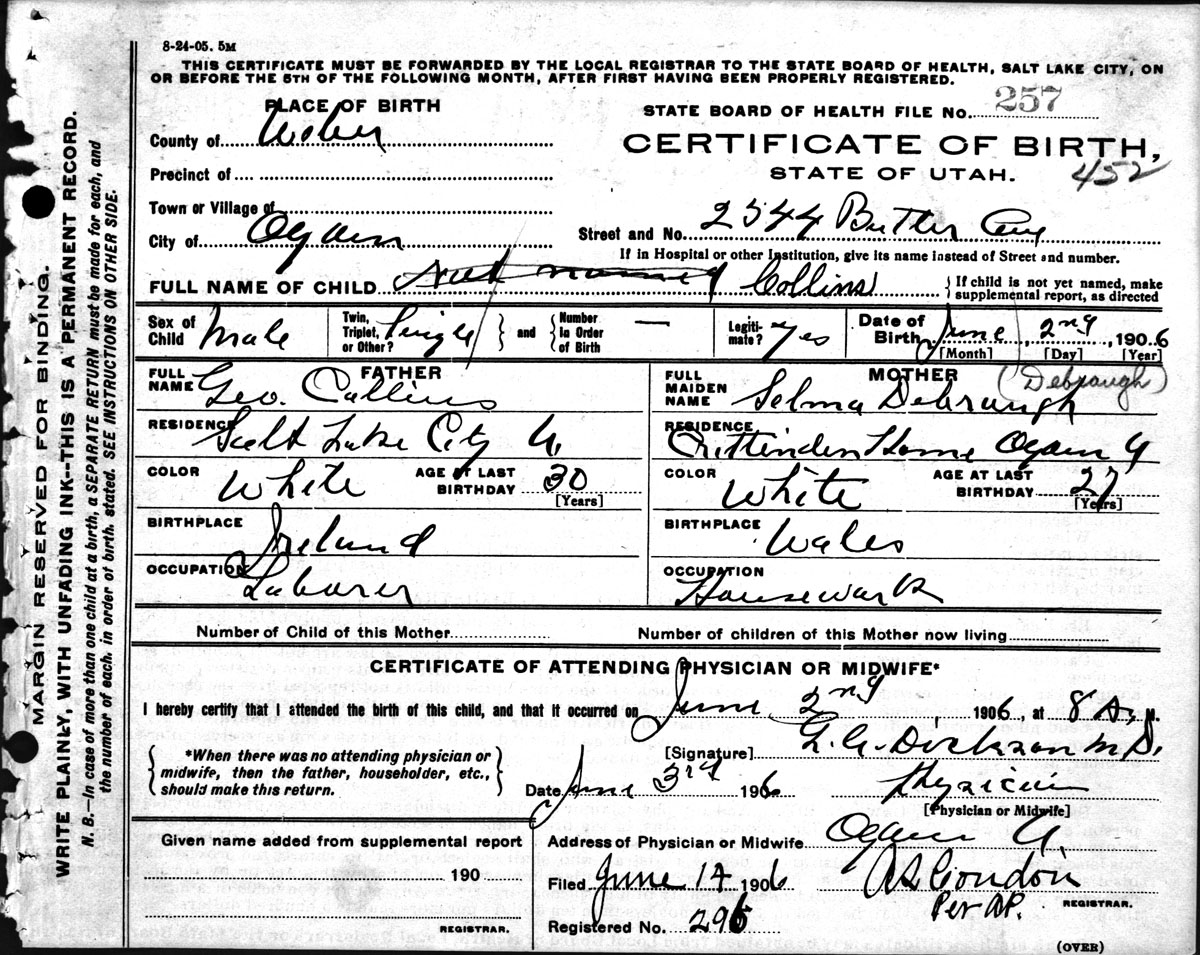 8-24-05. 5M
THIS CERTIFICATE MUST BE FORWARDED BY THE LOCAL REGISTRAR TO THE STATE BOARD OF HEALTH, SALT LAKE CITY, ON
OR BEFORE THE 5TH OF THE FOLLOWING MONTH, AFTER FIRST HAVING BEEN PROPERLY REGISTERED.
PLACE OF BIRTH
STATE BOARD OF HEALTH FILE No. 257
County of Weber
CERTIFICATE OF BIRTH,
Precinct of
STATE OF UTAH.
452
Town or Village of
City of Ogden
Street and No. 2544 Butler Ave
If in Hospital or other Institution, give its name instead of Street and number.
FULL NAME OF CHILD Not named Collins
If child is not yet named, make
supplemental report, as directed
Sex of Child Male
Twin, Triplet, or Other? Single
and
Number in Order of Birth —
Legiti-mate? Yes
Date of Birth June 2nd, 1906
[Month] [Day] [Year]
FATHER
FULL NAME Geo. Collins
MOTHER (Debraugh)
FULL MAIDEN NAME Selma Debraugh
RESIDENCE Salt Lake City U.
RESIDENCE Crittinden Home Ogden U
COLOR White
AGE AT LAST BIRTHDAY 30
[Years]
COLOR White
AGE AT LAST BIRTHDAY 27
[Years]
BIRTHPLACE Ireland
BIRTHPLACE Wales
OCCUPATION Laborer
OCCUPATION Housework
Number of Child of this Mother
Number of children of this Mother now living
CERTIFICATE OF ATTENDING PHYSICIAN OR MIDWIFE*
I hereby certify that I attended the birth of this child, and that it occurred on June 2nd 1906, at 8 A. M.
*When there was no attending physician or
midwife, then the father, householder, etc.,
should make this return.
[Signature] Dickson M.D.
Date June 3rd 1906
Physician
[Physician or Midwife]
Given name added from supplemental report
190
REGISTRAR.
Address of Physician or Midwife Ogden U.
Filed June 14 1906
Condon
Per AP.
REGISTRAR.
Registered No. 296
(OVER)
MARGIN RESERVED FOR BINDING.
WRITE PLAINLY, WITH UNFADING INK--THIS IS A PERMANENT RECORD.
N. B.—In case of more than one child at a birth, a SEPARATE RETURN must be made for each, and
the number of each, in order of birth, stated. SEE INSTRUCTIONS ON OTHER SIDE.